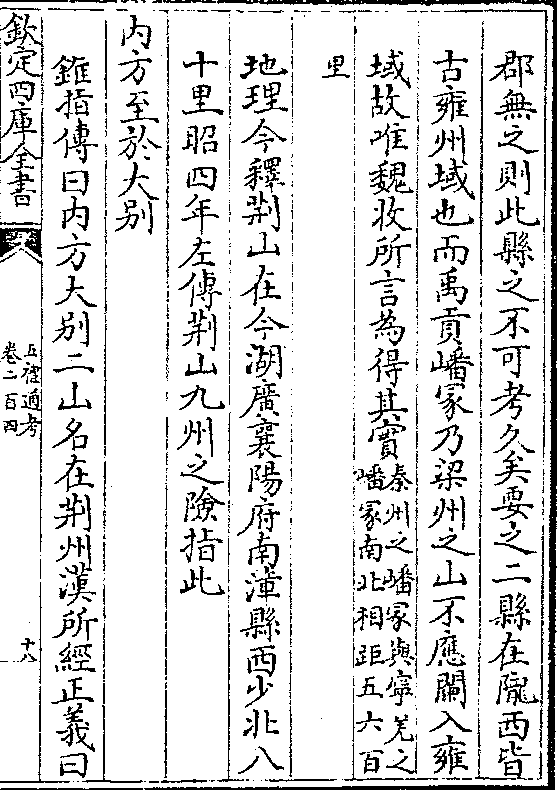 郡無之則此縣之不可考久矣要之二縣在隴西皆
古雍州域也而禹貢嶓冢乃梁州之山不應闌入雍
域故唯魏收所言為得其實秦州之嶓冢與寧羌之
嶓冢南北相距五六百
里
地理今釋荆山在今湖廣襄陽府南漳縣西少北八
十里昭四年左傳荆山九州之險指此
内方至於大别
錐指傳曰内方大别二山名在荆州漢所經正義曰
欽定四庫全書
五禮通考
卷二百四
十八